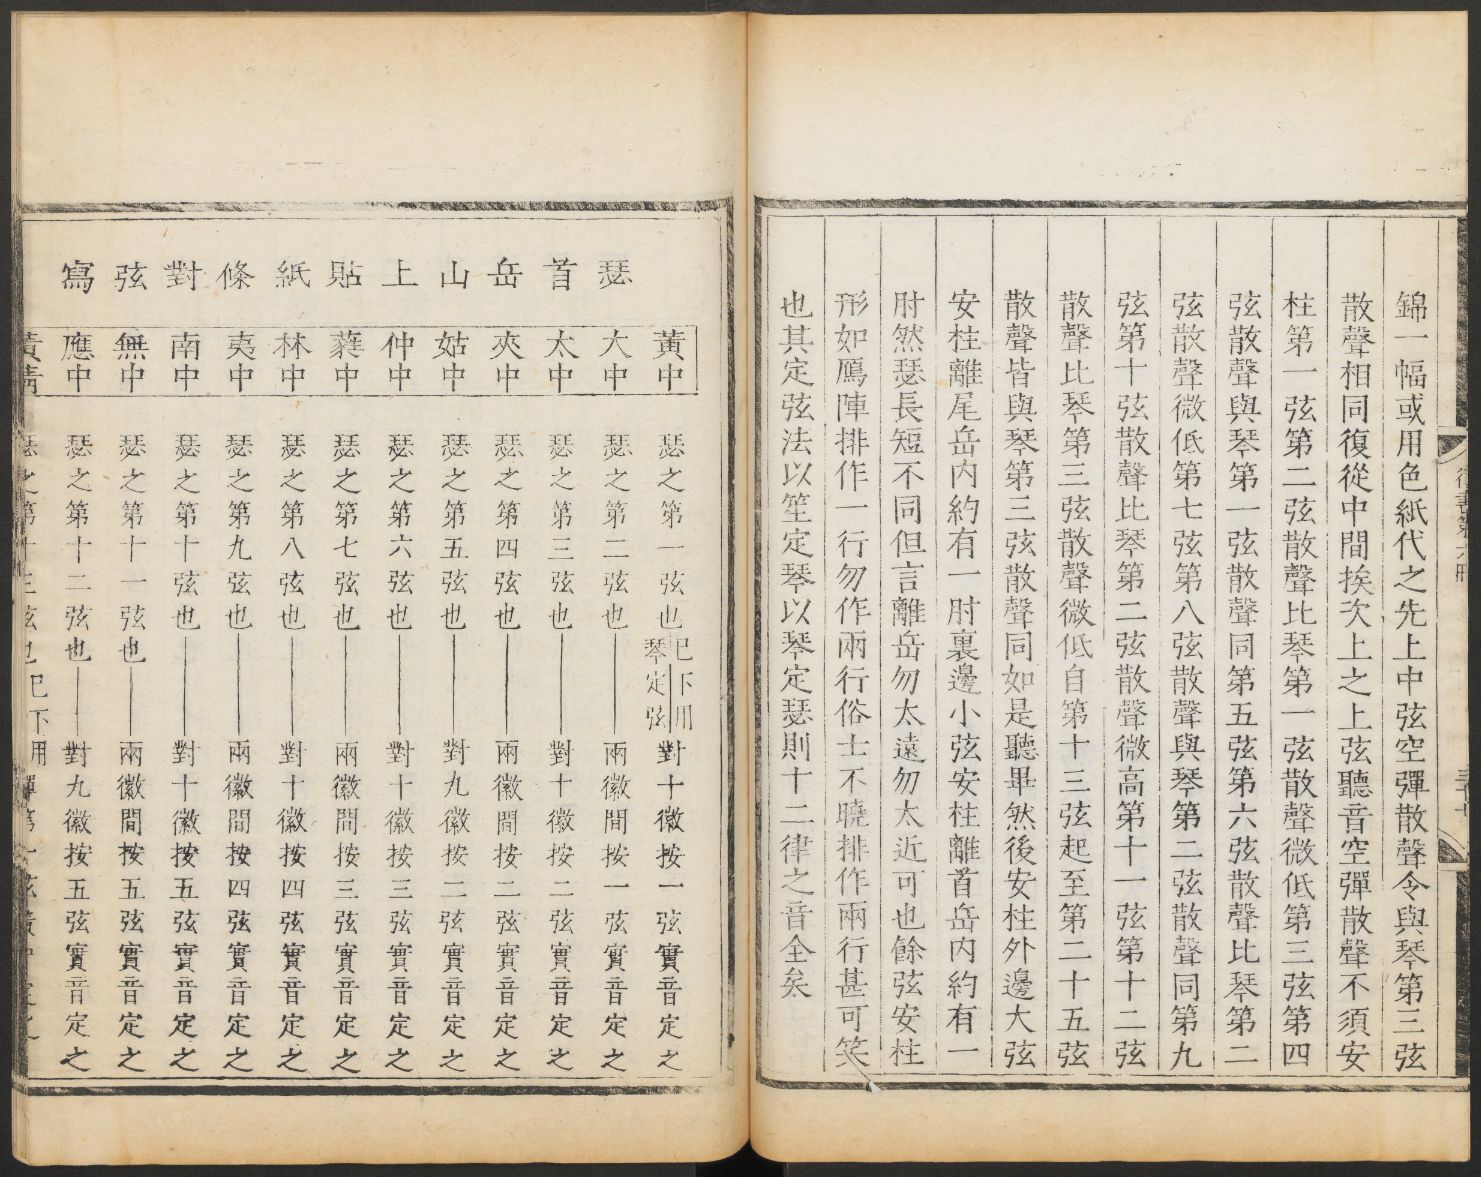 錦一幅或用色紙代之先上中弦空彈散聲令與琴第三弦
散聲相同復從中間挨次上之上弦聽音空彈散聲不須安
柱第一弦第二弦散聲比琴第一弦散聲微低第三弦第四
弦散聲與琴第一弦散聲同第五弦第六弦散聲比琴第二
弦散聲微低第七弦第八弦散聲與琴第二弦散聲同第九
弦第十弦散聲比琴第二弦散聲微高第十一弦第十二弦
散聲比琴第三弦散聲微低自第十三弦起至第二十五弦
散聲皆與琴第三弦散聲同如是聽畢然後安柱外邊大弦
安柱離尾岳內約有一肘裏邊小弦安柱離首岳內約有一
肘然瑟長短不同但言離岳勿太遠勿太近可也餘弦安柱
形如鴈陣排作一行勿作兩行俗士不曉排作兩行甚可笑
也其定弦法以笙定琴以琴定瑟則十二律之音全矣
黃中 瑟之第一弦也 已下用琴定弦 對十徽按一弦實音定之
瑟 大中 瑟之第二弦也 兩徽間按一弦實音定之
首 太中 瑟之第三弦也 對十徽按二弦實音定之
岳 夾中 瑟之第四弦也 兩徽間按二弦實音定之
山 姑中 瑟之第五弦也 對九徽按二弦實音定之
上 仲中 瑟之第六弦也 對十徽按三弦實音定之
貼 蕤中 瑟之第七弦也 兩徽間按三弦實音定之
紙 林中 瑟之第八弦也 對十徽按四弦實音定之
條 夷中 瑟之第九弦也 兩徽間按四弦實音定之
對 南中 瑟之第十弦也 對十徽按五弦實音定之
弦 無中 瑟之第十一弦也 兩徽間按五弦實音定之
寫 應中 瑟之第十二弦也 對九徽按五弦實音定之
黃清 瑟之第十三弦也 已下用彈第一弦黃中定之